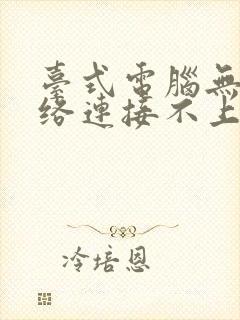 臺式電腦無
絡連接不上
冷培恩